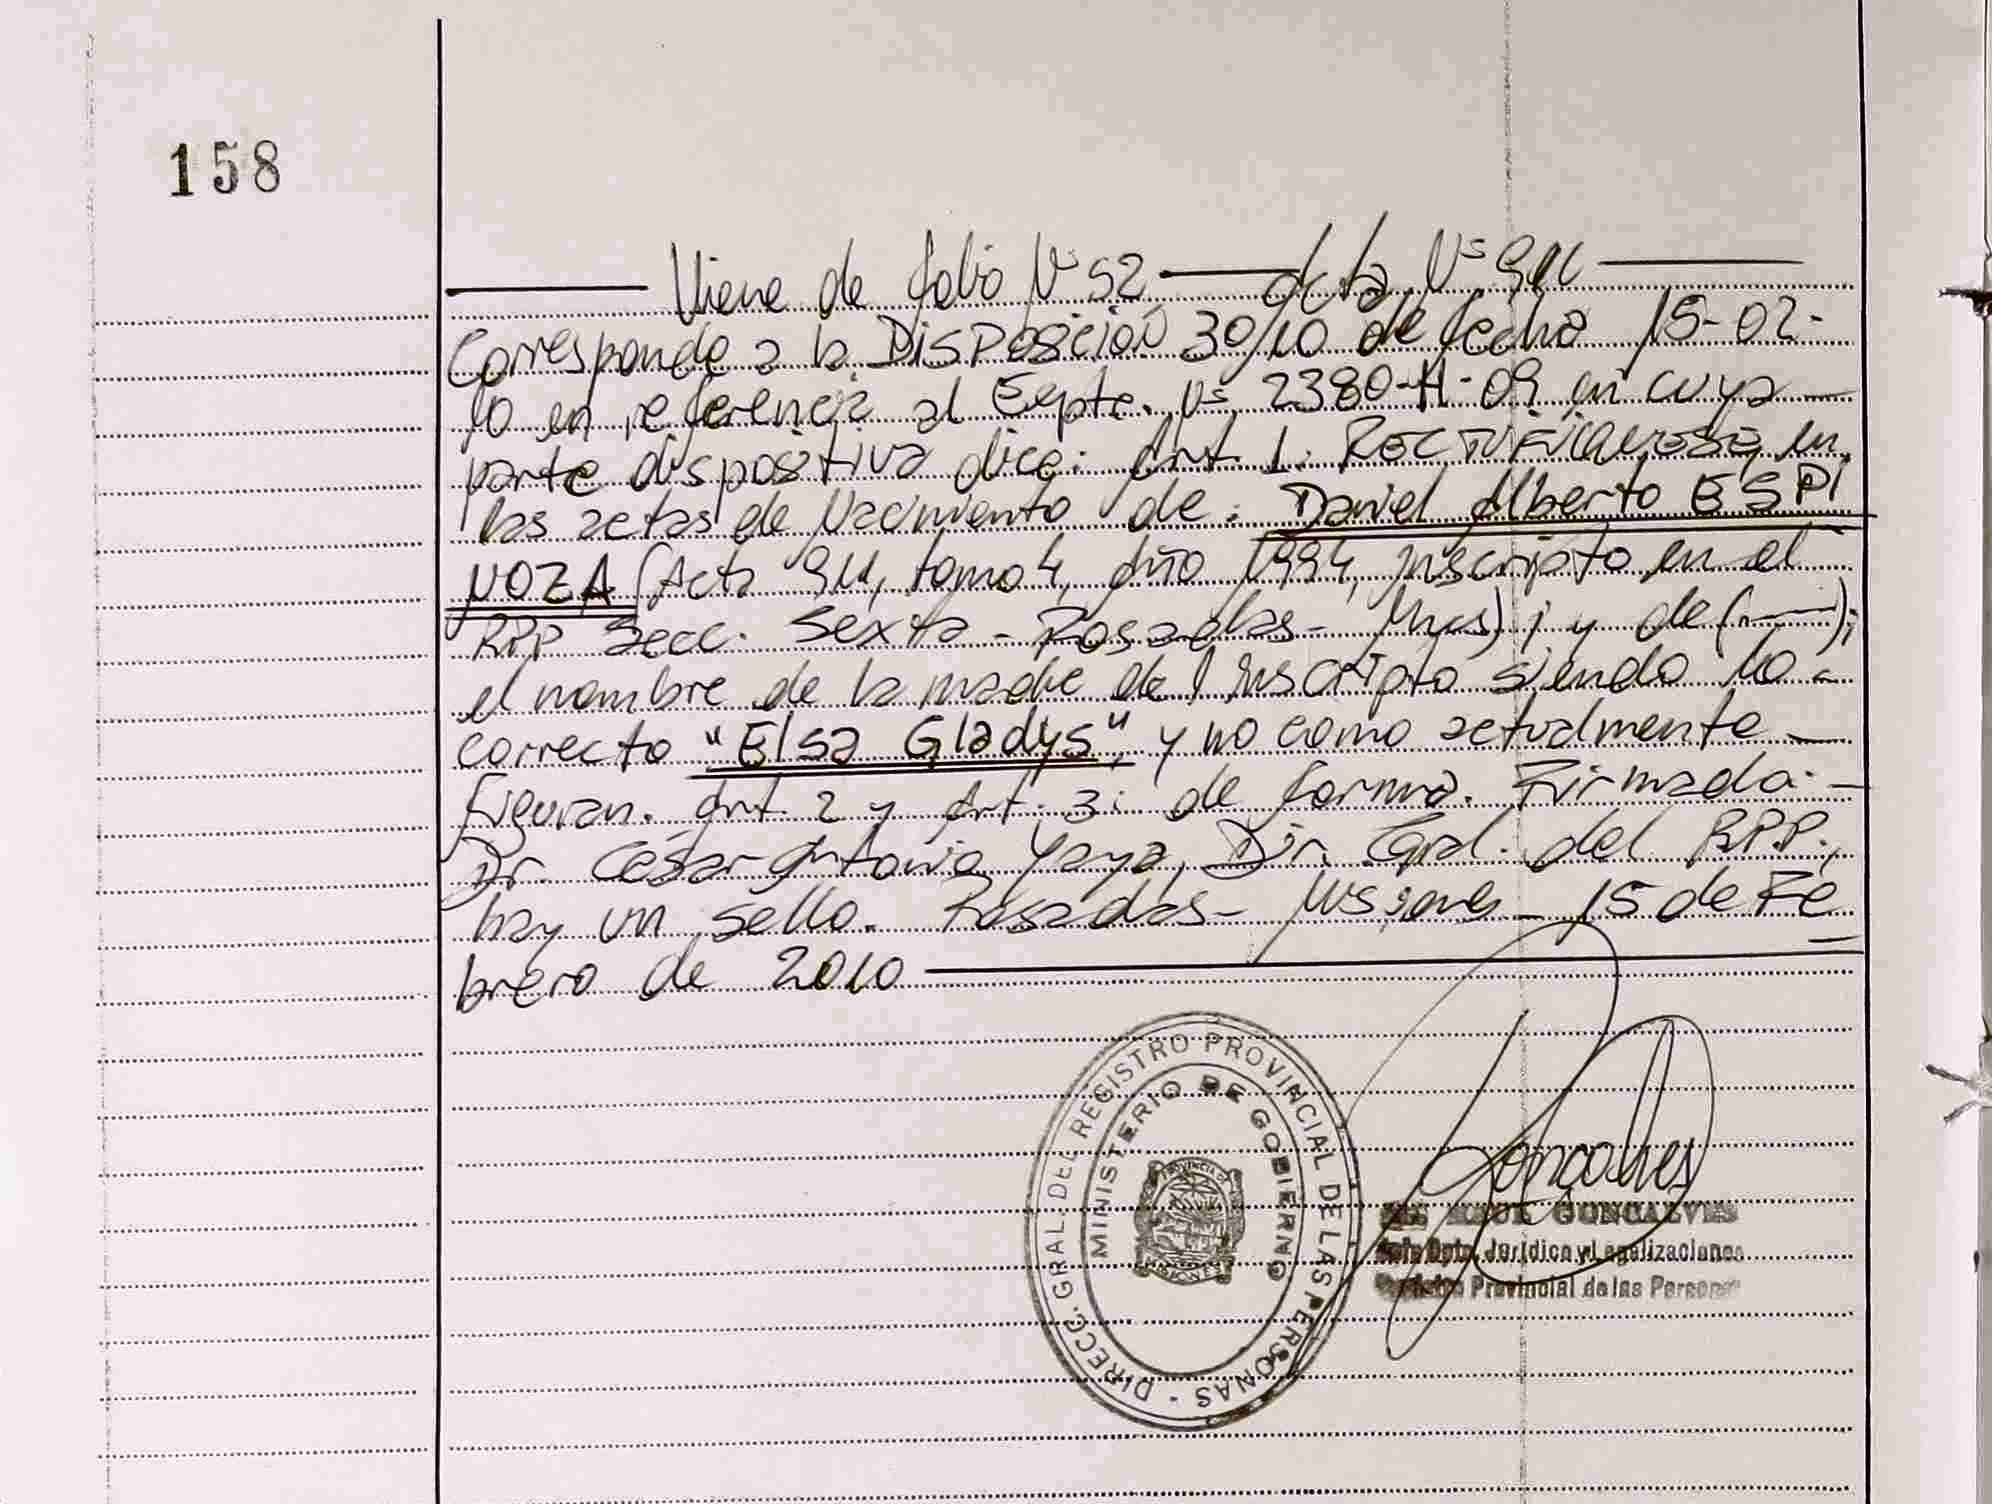 158
Viene de folio N° 52 — Acta N° 911
Corresponde a la DISPOSICIÓN 30/10 de fecha 15-02-
10 en referencia al Expte. N° 2380-H-09 en cuya
parte dispositiva dice: Art. 1. RECTIFIQUESE, en
las actas de Nacimiento de: Daniel Alberto ESPI
NOZA (Acta 911, tomo 4, Año 1994, inscripto en el
RPP Secc. Sexta - Posadas - Mnes) ; y de (——);
el nombre de la madre del inscripto siendo lo -
correcto "Elsa Gladys", y no como actualmente —
figuran. Art. 2 y Art. 3: de forma. Firmado: -
Dr. César Antonio Yaya, Dir. Gral. del RPP.,
hay un sello. Posadas - Misiones - 15 de Fe
brero de 2010
DIRECC. GRAL. DEL REGISTRO PROVINCIAL DE LAS PERSONAS -
MINISTERIO DE GOBIERNO
PROVINCIA DE
MISIONES
Goncalves
GONCALVES
Dpto. Jurídica y Legalizaciones
Provincial de las Personas